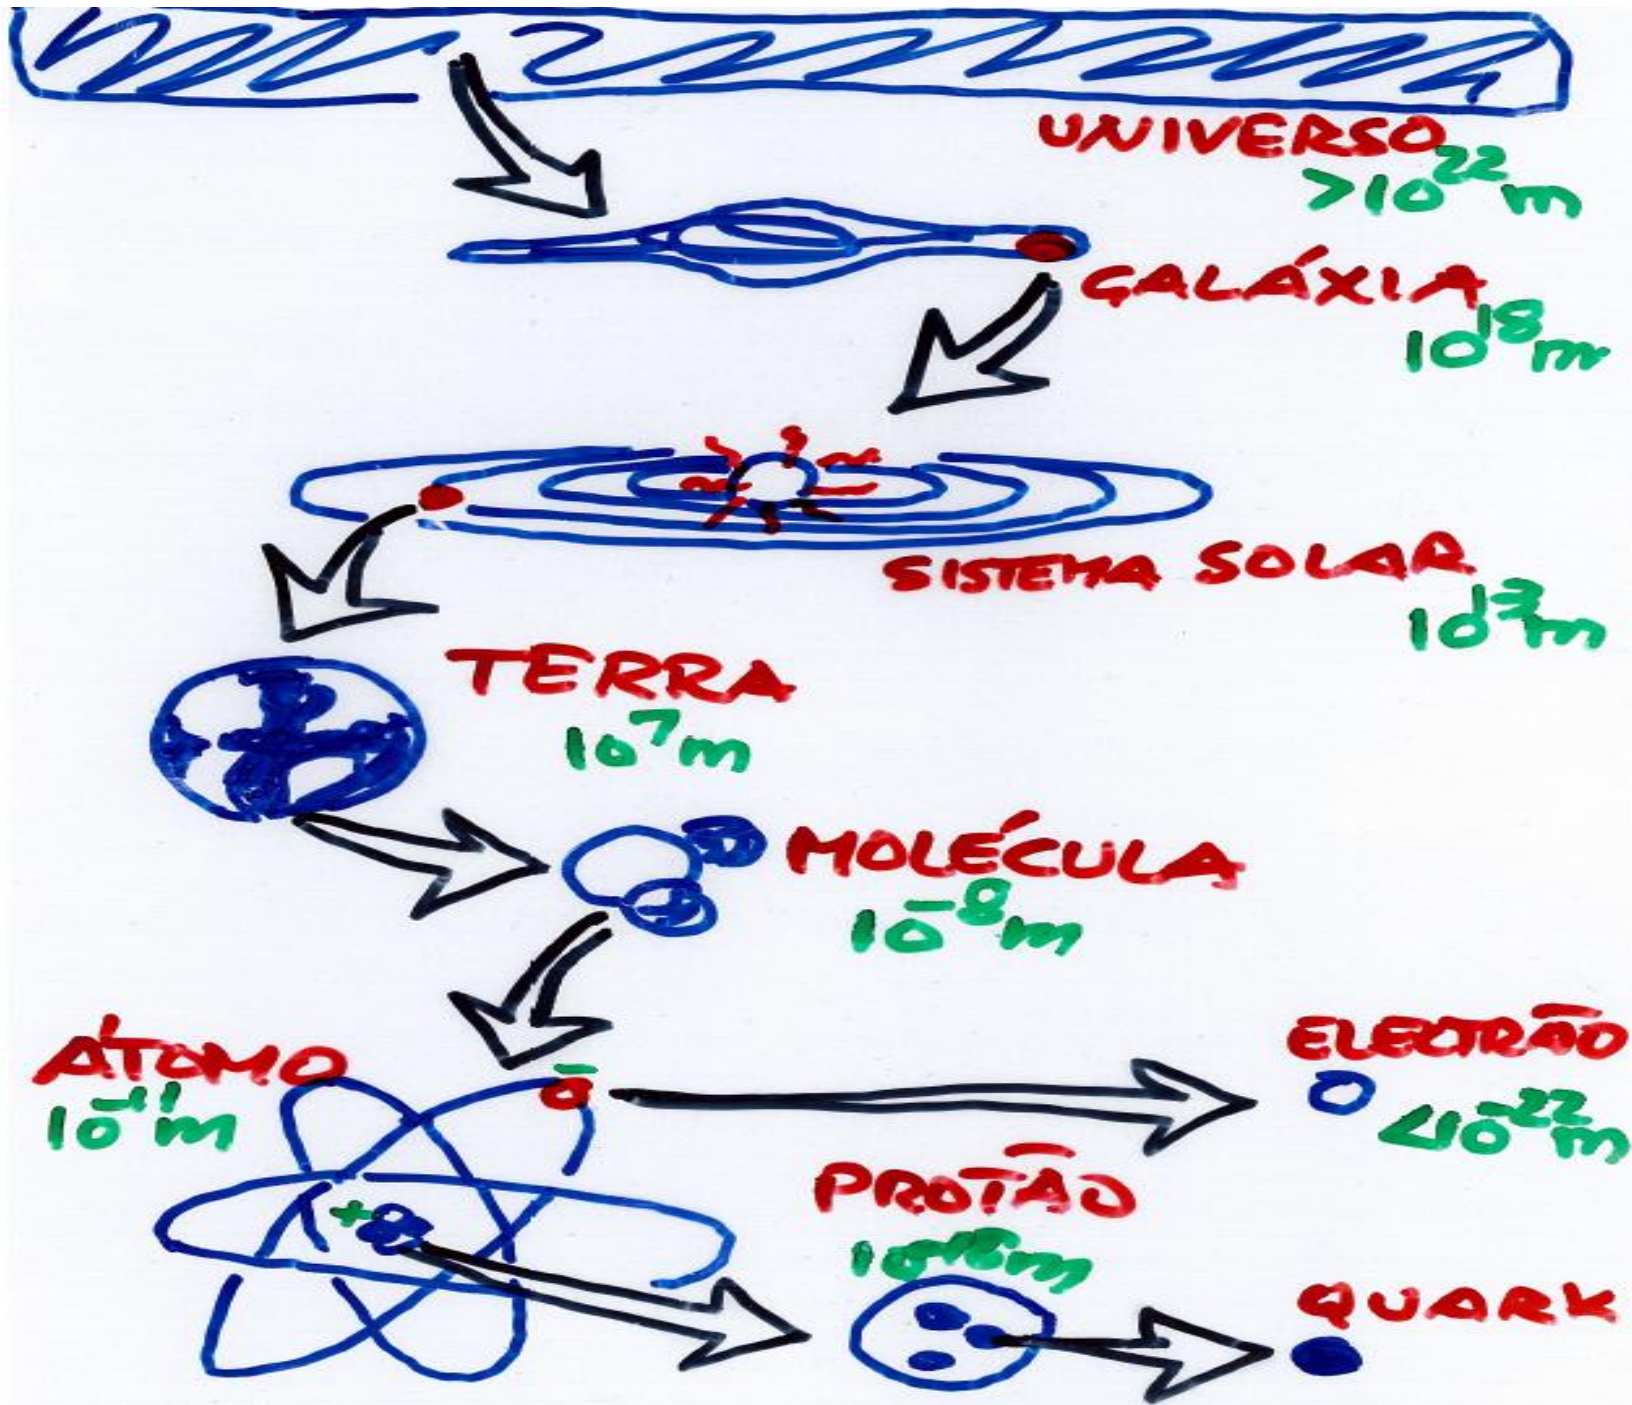 UNIVERSO
>10²²m
GALÁXIA
10¹⁸m
SISTEMA SOLAR
10¹³m
TERRA
10⁷m
MOLÉCULA
10⁻⁸m
ÁTOMO
10⁻¹¹m
-
ELECTRÃO
<10⁻²²m
+
PROTÃO
QUARK